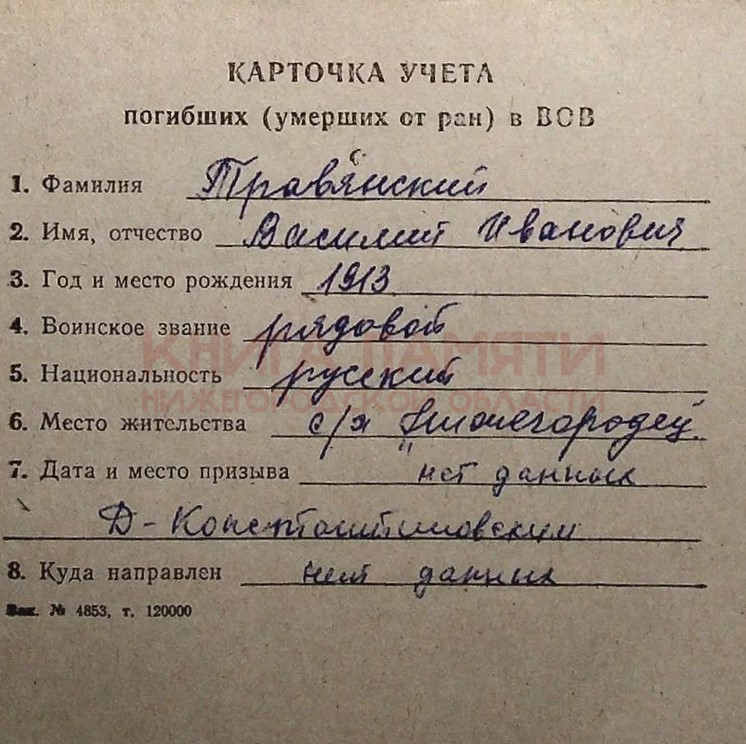 КАРТОЧКА УЧЕТА
погибших (умерших от ран) в ВОВ
с
1. Фамилия Травянский
2. Имя, отчество Василий Иванович
3. Год и место рождения 1913
4. Воинское звание рядовой
КНИГА ПАМЯТИ
5. Национальность русский
НИЖЕГОРОДСКОЙ ОБЛАСТИ
6. Место жительства с/х "Нижегородец"
7. Дата и место призыва нет данных
Д-Константиновским
8. Куда направлен нет данных
Зак. № 4853, т. 120000